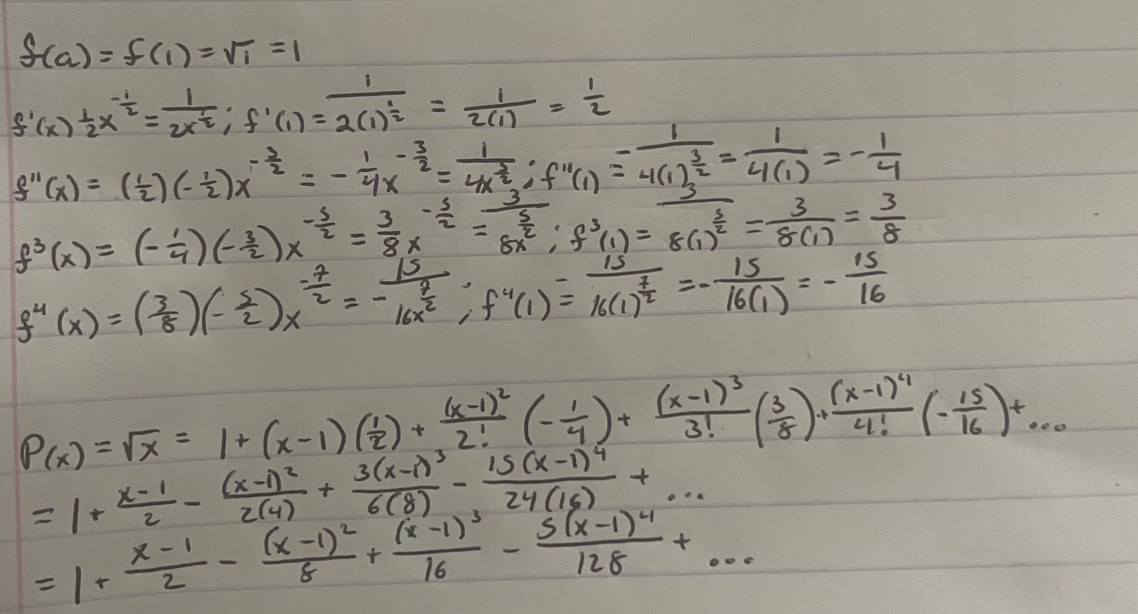 f(a) = f(1) = √1 = 1
f'(x) 1/2 x^(-1/2) = 1/(2x^(1/2)) ; f'(1) = 1/(2(1)^(1/2)) = 1/(2(1)) = 1/2
f''(x) = (1/2)(-1/2)x^(-3/2) = -1/4 x^(-3/2) = 1/(4x^(3/2)) ; f''(1) = -1/(4(1)^(3/2)) = 1/(4(1)) = -1/4
f^3(x) = (-1/4)(-3/2)x^(-5/2) = 3/8 x^(-5/2) = 3/(8x^(5/2)) ; f^3(1) = 3/(8(1)^(5/2)) = 3/(8(1)) = 3/8
f^4(x) = (3/8)(-5/2)x^(-7/2) = -15/(16x^(7/2)) ; f^4(1) = -15/(16(1)^(7/2)) = -15/(16(1)) = -15/16
P(x) = √x = 1 + (x-1)(1/2) + (x-1)^2/2! (-1/4) + (x-1)^3/3! (3/8) + (x-1)^4/4! (-15/16) + ...
= 1 + (x-1)/2 - (x-1)^2/(2(4)) + 3(x-1)^3/(6(8)) - 15(x-1)^4/(24(16)) + ...
= 1 + (x-1)/2 - (x-1)^2/8 + (x-1)^3/16 - 5(x-1)^4/128 + ...